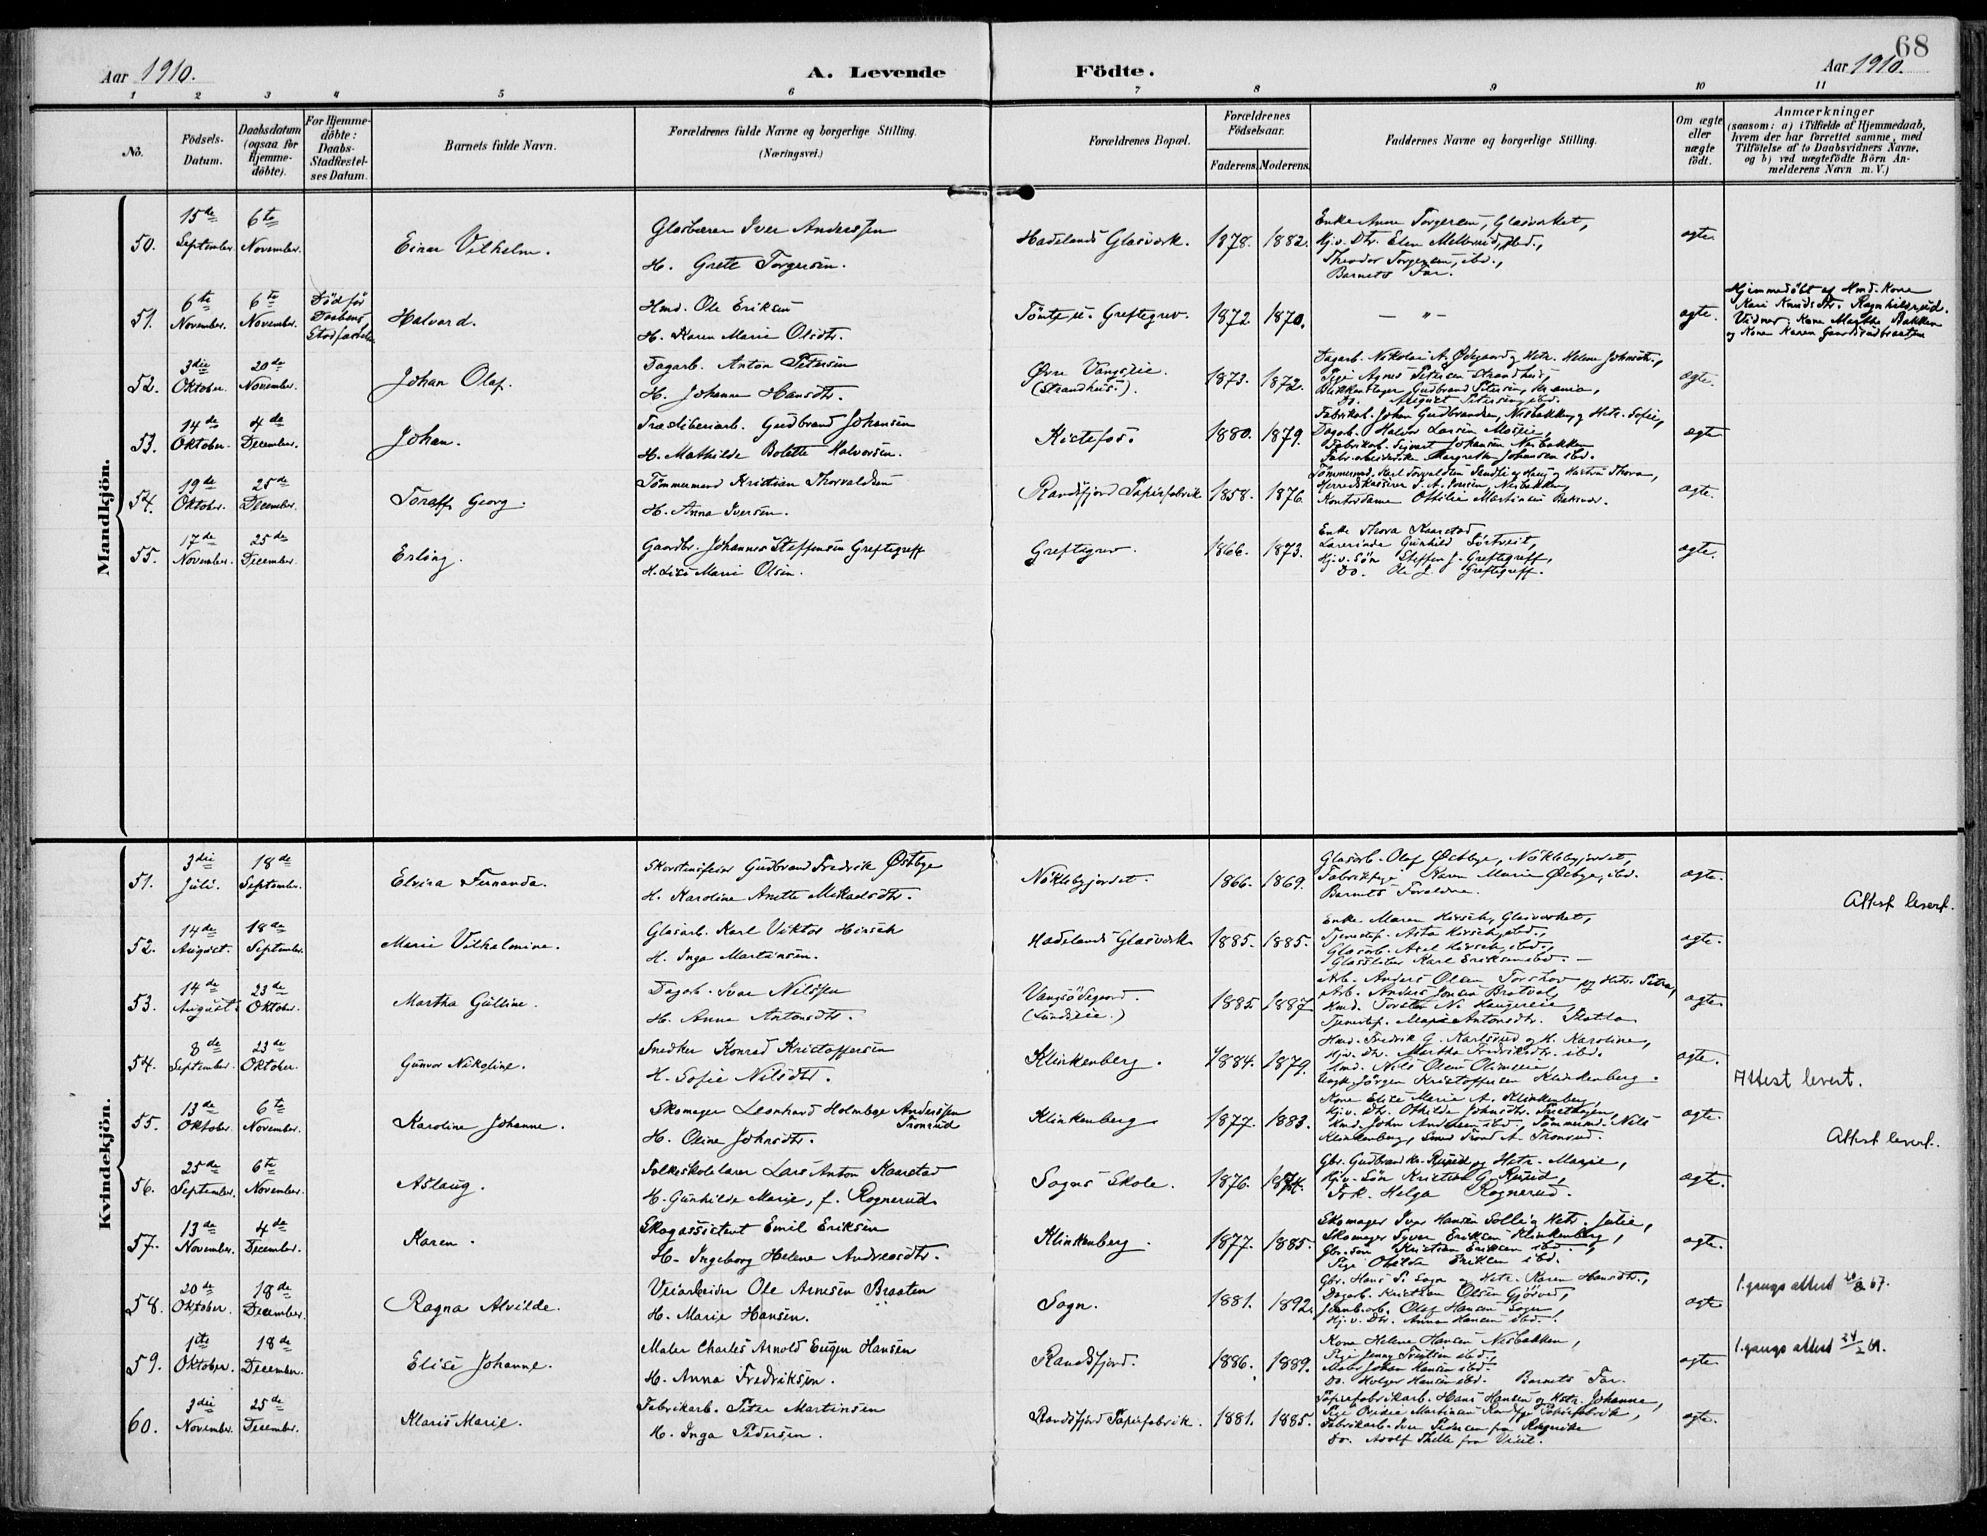 68
Aar 1910.
A. Levende Födte.
Aar 1910.
1 2 3 4 5 6 7 8 9 10 11
No.
Födsels-
Datum.
Daabsdatum
(ogsaa for
Hjemme-
döbte).
For Hjemme-
döbte:
Daabs-
Stadfæstel-
ses Datum.
Barnets fulde Navn.
Forældrenes fulde Navne og borgerlige Stilling.
(Næringsvei.)
Forældrenes Bopæl.
Forældrenes
Födselsaar.
Faderens. Moderens.
Faddernes Navne og borgerlige Stilling.
Om ægte
eller
uægte
födt.
Anmærkninger
(saasom: a) i Tilfælde af Hjemmedaab,
hvem der har forrettet samme, med
Tilföielse af to Daabsvidners Navne,
og b) ved uægtefödte Börn An-
melderens Navn m. V.)
Mandkjön.
50.
15de
September.
6te
November.
Einar Vilhelm.
Glasbærer Iver Anderssen
H. Grete Torgersen.
Hadelands Glasværk.
1878. 1882.
Enke Anne Torgersen, Glasværket,
Theodor Torgersen, ibd.,
Barnets Far.
ægte.
51.
6te
November.
6te
November.
Död för
Daabens
Halvard.
Hmd. Ole Eriksen
H. Karen Marie Olsdtr.
Tömte u. Greftegrev.
1872 1870.
— " —
ægte.
Hjemmedöbt af Hmd. Kone
Kari Knudsdtr. Ragnhildsrud.
Vidner, Kone Marthe Bakken
og Kone Karen
52.
3die
Oktober.
20de
November.
Johan Olaf.
Dagarb. Anton Petersen
H. Johanne Hansdtr.
Övre Vangseie.
(Strandhus.)
1873. 1872.
Dagarb. Nikolai A. Ödegaard og Hstr. Helene Johnsdtr.,
Pige Agnes Petersen Strandhus,
Gudbrand Petersen,
Do. August Petersen, ibd.
ægte.
53.
14de
Oktober.
4de
December.
Johan.
Træsliberiarb. Gudbrand Johansen
H. Mathilde Bolette Halvorsen.
Kistefos.
1880. 1879.
Fabrikarb. Johan Gudbrandsen, Nesbakken, og Hstr. Sofie,
Dagarb. Halvor Larsen
Fabrikarb. Sigvart Johansen Nesbakken
Fabrikarbeiderske Margrethe Johansen ibd.
ægte
54.
19de
Oktober.
25de
December.
Toralf Georg.
Tömmermand Kristian Thorvaldsen
H. Anna Iversen.
Randsfjord Papirfabrik
1858. 1876.
Tömmermd. Karl Torvaldsen og Hustru Thora,
Herredskasserer Jensen, Nesbakken,
Kontordame Othilie Martinsen
ægte.
55.
17de
November.
25de
December.
Erling.
Gaardbr. Johannes Steffensen Greftegreff
H. Lise Marie Olsen.
Greftegrev.
1866. 1873.
Enke Thora Kaarstad
Lærerinde Gunhild
Hj.v. Sön Steffen J. Greftegreff,
Do. Ole J. Greftegreff.
ægte.
Kvindekjön.
51.
3die
Juli.
18de
September.
Elvira Fernanda.
Skorstensfeier Gudbrand Fredrik Östbye
H. Karoline Anette
Nöklebyjordet.
1866. 1869.
Glasarb. Olaf Östbye, Nöklebyjordet,
Fabrikpige Karen Marie Östbye, ibd.
Barnets Forældre.
ægte.
Attest levert.
52.
14de
August.
18de
September.
Marie Vilhelmine.
Glasarb. Karl Viktor Hirsch
H. Inga Martinsen.
Hadelands Glasværk
1885. 1885.
Enke Maren Hirsch, Glasværket,
Tjenestep. Asta Hirsch, ibd.,
Glasarb. Axel Hirsch, ibd.,
Glassliber Karl Eriksen ibd. —
ægte.
53.
14de
August.
23de
Oktober.
Martha Gulline.
Dagarb. Ivar Nilssen
H. Anna Antonsdtr.
Vangsödegaard.
(Lundseie.)
1885 1887
Arb. Anders Olsen Torshov og Hstr. Petra,
Arb. Anders Jensen Bratval,
Hmd. Torsten N. Haugereie
Tjenestep. Marie Antonsdtr.
ægte.
54.
8de
September.
23de
Oktober.
Gunvor Nikoline.
Snedker Konrad Kristoffersen
H. Sofie Nilsdtr.
Klinkenberg.
1884. 1879.
Hmd. Fredrik G. Karlsrud og H. Karoline,
Hj.v. Dtr. Martha Fredriksdtr. ibd.
Hmd. Nils Olsen
Ungk. Jörgen Kristoffersen Klinkenberg.
ægte.
Attest levert.
55.
13de
Oktober.
6te
November.
Karoline Johanne.
Skomager Leonhard Holmboe Anderssen
Tronrud
H. Oline Johnsdtr.
Klinkenberg
1877. 1883.
Kone Elise Marie A. Klinkenberg,
Hj.v. Dtr. Othilde Johnsdtr.
Hmd. John Andersen ibd., Tömmermd. Nils
Klinkenberg, Smed Trond A. Tronrud.
ægte.
Attest levert.
56.
25de
September.
6te
November.
Aslaug.
Folkeskolelærer Lars Anton Kaarstad
H. Gunhilde Marie, f. Rognerud.
Sogns Skole.
1876. 1874.
Gbr. Gudbrand Kr. og Hstr. Marie,
Hj.v. Sön Kristian G.
Frk. Helga Rognerud.
ægte.
57.
13de
November.
4de
December.
Karen.
Skogassistent Emil Eriksen
H. Ingeborg Helene Andreasdtr.
Klinkenberg.
1877. 1885.
Skomager Iver Hansen Sollie, Hstr. Julie,
Skomager Syver Eriksen Klinkenberg,
Gbr. Sön Kristian Eriksen ibd.,
Pige Othilde Eriksen ibd.
ægte.
58.
20de
Oktober.
18de
December.
Ragna Alvilde.
Veiarbeider Ole Arnesen Braaten
H. Marie Hansen.
Sogn.
1881. 1892.
Gbr. Hans P. Sogn og Hstr. Karen Hansdtr.,
Dagarb. Kristian Olsen
Jernb.arb. Olaf Hansen Sogn,
Hj.v. Dtr. Anna Hansen ibd.
ægte
1. gangs attest 67.
59.
1ste
Oktober.
18de
December.
Elise Johanne.
Maler Charles Arnold Eugen Hansen
H. Anna Fredriksen.
Randsfjord.
1886. 1889.
Kone Helene Hansen Nesbakken,
Pige Jenny ibd.
Maler Johan Hansen ibd.
Do. Holger Hansen ibd. Barnets Far.
ægte
1. gangs attest 24/2 69.
60.
3die
November.
25de
December.
Klaris Marie.
Fabrikarb. Peter Martinsen
H. Inga Pedersen.
Randsfjord Papirfabrik.
1881. 1885.
Papirfabrikarb. Hans Hansen og Hstr. Johanne,
Pige Ovidie Martinsen Randsfj. Papirfabrik,
Fabrikarb. Iver Pedersen fra Ringerike
Do. Adolf Thelle fra
ægte.